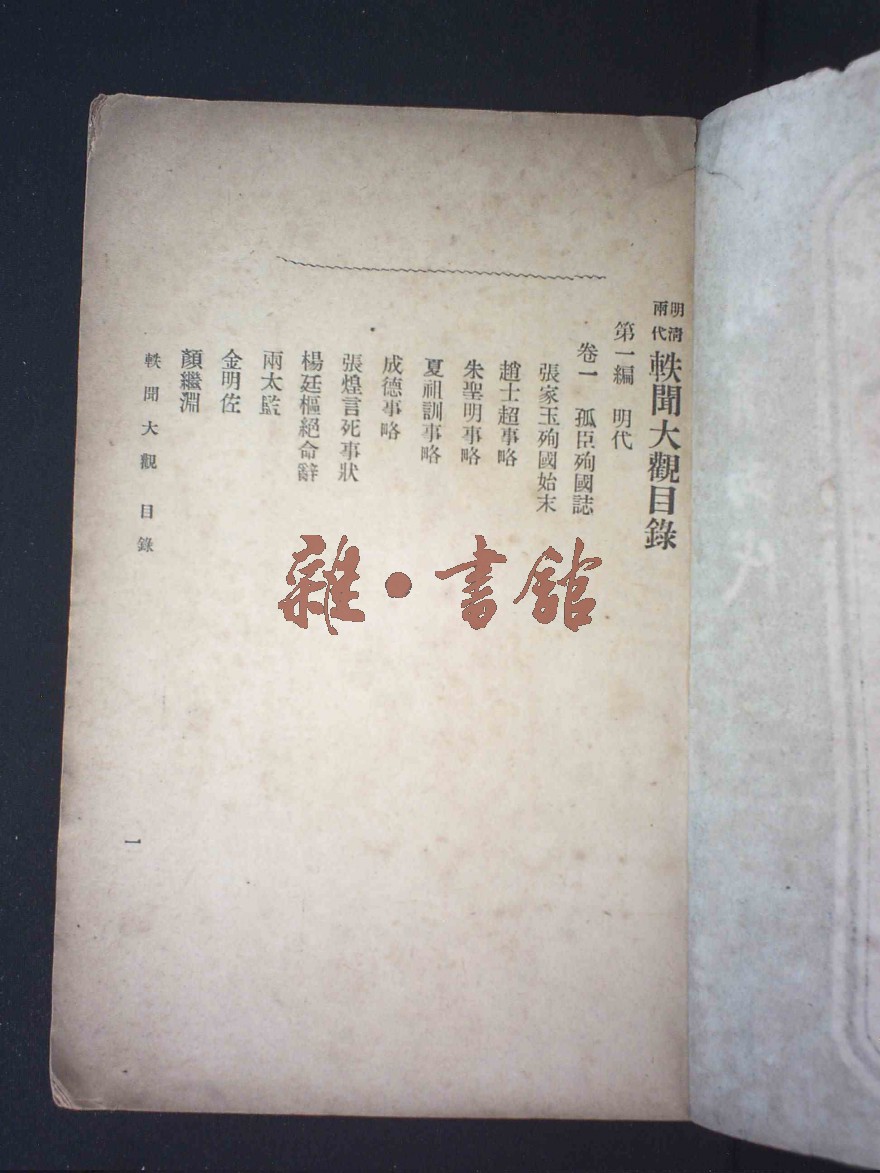 明清兩代軼聞大觀目錄
第一編　明代
卷一　孤臣殉國誌
張家玉殉國始末
趙士超事略
朱聖明事略
夏祖訓事略
成德事略
張煌言死事狀
楊廷樞絕命辭
兩太監
金明佐
顏繼淵
軼聞大觀　目錄
一
雜·書館